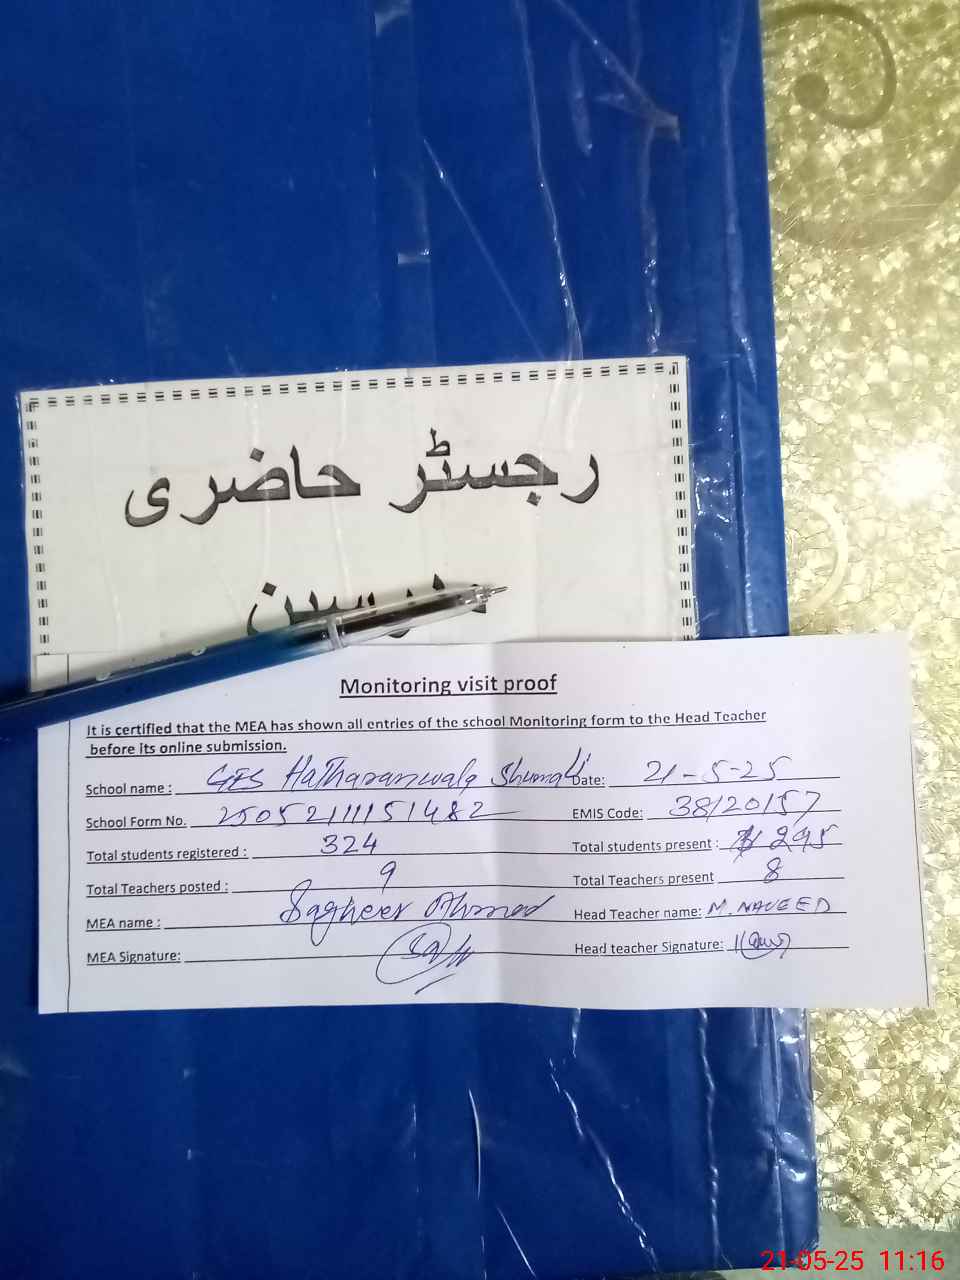 رجسٹر حاضری
مدرسین
Monitoring visit proof
It is certified that the MEA has shown all entries of the school Monitoring form to the Head Teacher
before its online submission.
School name : GES Hatharanwala Shumali Date: 21-5-25
School Form No. 25052111151482 EMIS Code: 38120157
Total students registered : 324 Total students present : 295
Total Teachers posted : 9 Total Teachers present 8
MEA name : Sagheer Ahmad Head Teacher name: M. NAVEED
MEA Signature: Head teacher Signature:
21-05-25 11:16